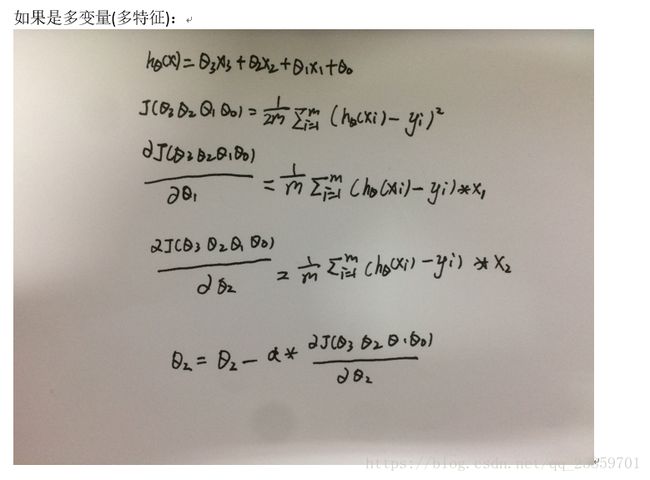 如果是多变量(多特征)：
hθ(x) = θ3x3 + θ2x2 + θ1x1 + θ0
J(θ3 θ2 θ1 θ0) = 1/2m Σi=1^m (hθ(xi) - yi)²
∂J(θ3 θ2 θ1 θ0)/∂θ1 = 1/m Σi=1^m (hθ(xi) - yi) * x1
∂J(θ3 θ2 θ1 θ0)/∂θ2 = 1/m Σi=1^m (hθ(xi) - yi) * x2
θ2 = θ2 - α * ∂J(θ3 θ2 θ1 θ0)/∂θ2
https://blog.csdn.net/qq_25859701